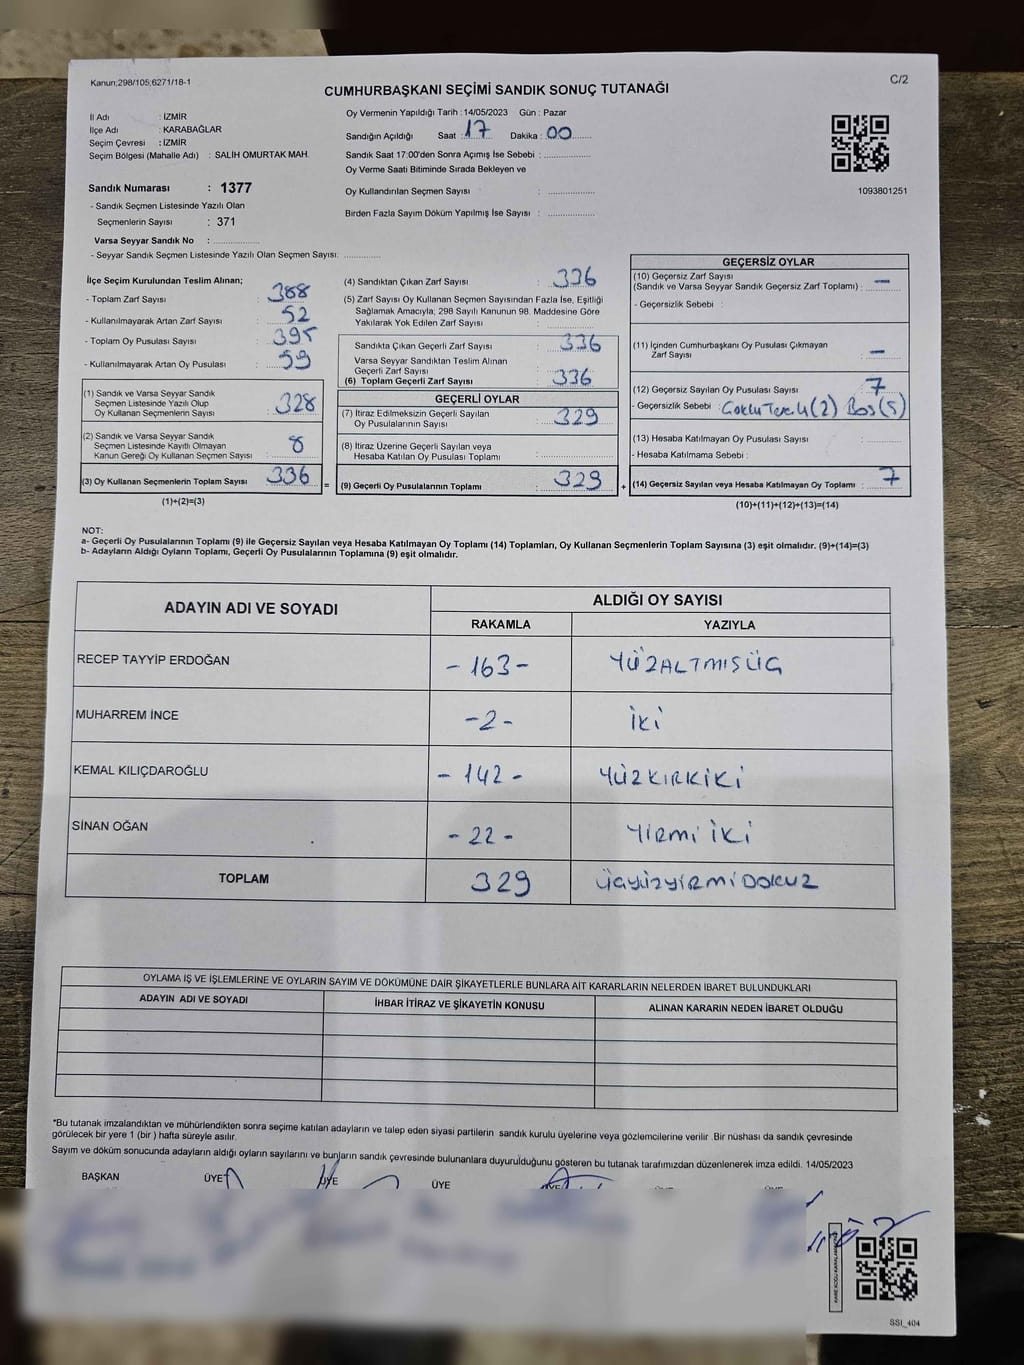 Kanun;298/105;6271/18-1
C/2
CUMHURBAŞKANI SEÇİMİ SANDIK SONUÇ TUTANAĞI
İl Adı : İZMİR
İlçe Adı : KARABAĞLAR
Seçim Çevresi : İZMİR
Seçim Bölgesi (Mahalle Adı) : SALİH OMURTAK MAH.
Sandık Numarası : 1377
- Sandık Seçmen Listesinde Yazılı Olan
Seçmenlerin Sayısı : 371
Varsa Seyyar Sandık No : ..............
- Seyyar Sandık Seçmen Listesinde Yazılı Olan Seçmen Sayısı: ..............
Oy Vermenin Yapıldığı Tarih : 14/05/2023 Gün : Pazar
Sandığın Açıldığı Saat : 17 Dakika : 00
Sandık Saat 17:00'den Sonra Açımış İse Sebebi : ..............
Oy Verme Saati Bitiminde Sırada Bekleyen ve
Oy Kullandırılan Seçmen Sayısı : ..............
Birden Fazla Sayım Döküm Yapılmış İse Sayısı : ..............
1093801251
İlçe Seçim Kurulundan Teslim Alınan;
- Toplam Zarf Sayısı : 388
- Kullanılmayarak Artan Zarf Sayısı : 52
- Toplam Oy Pusulası Sayısı : 395
- Kullanılmayarak Artan Oy Pusulası : 59
(1) Sandık ve Varsa Seyyar Sandık
Seçmen Listesinde Yazılı Olup
Oy Kullanan Seçmenlerin Sayısı : 328
(2) Sandık ve Varsa Seyyar Sandık
Seçmen Listesinde Kayıtlı Olmayan
Kanun Gereği Oy Kullanan Seçmen Sayısı : 8
(3) Oy Kullanan Seçmenlerin Toplam Sayısı : 336 =
(1)+(2)=(3)
(4) Sandıktan Çıkan Zarf Sayısı : 336
(5) Zarf Sayısı Oy Kullanan Seçmen Sayısından Fazla İse, Eşitliği
Sağlamak Amacıyla; 298 Sayılı Kanunun 98. Maddesine Göre
Yakılarak Yok Edilen Zarf Sayısı : ..............
Sandıkta Çıkan Geçerli Zarf Sayısı : 336
Varsa Seyyar Sandıktan Teslim Alınan
Geçerli Zarf Sayısı : ..............
(6) Toplam Geçerli Zarf Sayısı : 336
GEÇERLİ OYLAR
(7) İtiraz Edilmeksizin Geçerli Sayılan
Oy Pusulalarının Sayısı : 329
(8) İtiraz Üzerine Geçerli Sayılan veya
Hesaba Katılan Oy Pusulası Toplamı : ..............
(9) Geçerli Oy Pusulalarının Toplamı : 329 +
GEÇERSİZ OYLAR
(10) Geçersiz Zarf Sayısı
(Sandık ve Varsa Seyyar Sandık Geçersiz Zarf Toplamı) : —
- Geçersizlik Sebebi :
(11) İçinden Cumhurbaşkanı Oy Pusulası Çıkmayan
Zarf Sayısı : —
(12) Geçersiz Sayılan Oy Pusulası Sayısı : 7
- Geçersizlik Sebebi : (2) Bos (5)
(13) Hesaba Katılmayan Oy Pusulası Sayısı : ..............
- Hesaba Katılmama Sebebi :
(14) Geçersiz Sayılan veya Hesaba Katılmayan Oy Toplamı : 7
(10)+(11)+(12)+(13)=(14)
NOT:
a- Geçerli Oy Pusulalarının Toplamı (9) ile Geçersiz Sayılan veya Hesaba Katılmayan Oy Toplamı (14) Toplamları, Oy Kullanan Seçmenlerin Toplam Sayısına (3) eşit olmalıdır. (9)+(14)=(3)
b- Adayların Aldığı Oyların Toplamı, Geçerli Oy Pusulalarının Toplamına (9) eşit olmalıdır.
ADAYIN ADI VE SOYADI
ALDIĞI OY SAYISI
RAKAMLA YAZIYLA
RECEP TAYYİP ERDOĞAN -163- YÜZALTMISÜÇ
MUHARREM İNCE -2- İKİ
KEMAL KILIÇDAROĞLU -142- YÜZKIRKİKİ
SİNAN OĞAN -22- YİRMİ İKİ
TOPLAM 329 ÜÇYÜZYİRMİDOKUZ
OYLAMA İŞ VE İŞLEMLERİNE VE OYLARIN SAYIM VE DÖKÜMÜNE DAİR ŞİKAYETLERLE BUNLARA AİT KARARLARIN NELERDEN İBARET BULUNDUKLARI
ADAYIN ADI VE SOYADI İHBAR İTİRAZ VE ŞİKAYETİN KONUSU ALINAN KARARIN NEDEN İBARET OLDUĞU
*Bu tutanak imzalandıktan ve mühürlendikten sonra seçime katılan adayların ve talep eden siyasi partilerin sandık kurulu üyelerine veya gözlemcilerine verilir .Bir nüshası da sandık çevresinde
görülecek bir yere 1 (bir ) hafta süreyle asılır.
Sayım ve döküm sonucunda adayların aldığı oyların sayılarını ve bunların sandık çevresinde bulunanlara duyurulduğunu gösteren bu tutanak tarafımızdan düzenlenerek imza edildi. 14/05/2023
BAŞKAN ÜYE ÜYE ÜYE
SSI_404